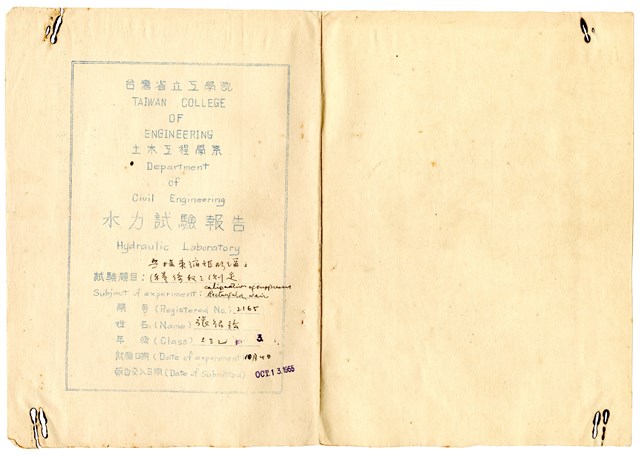 台灣省立工學院
TAIWAN COLLEGE
OF
ENGINEERING
土木工程學系
Department
of
Civil Engineering
水力試驗報告
Hydraulic Laboratory
試驗題目：係數之測定
calibration of suppressed
Subject of experiment: Rectangular Weir
號 (Registered No.) 2165
姓名 (Name) 張
年級 (Class) 3
試驗日期 (Date of experiment) 10月4日
報告交入日期 (Date of Submitted) OCT. 13. 1955